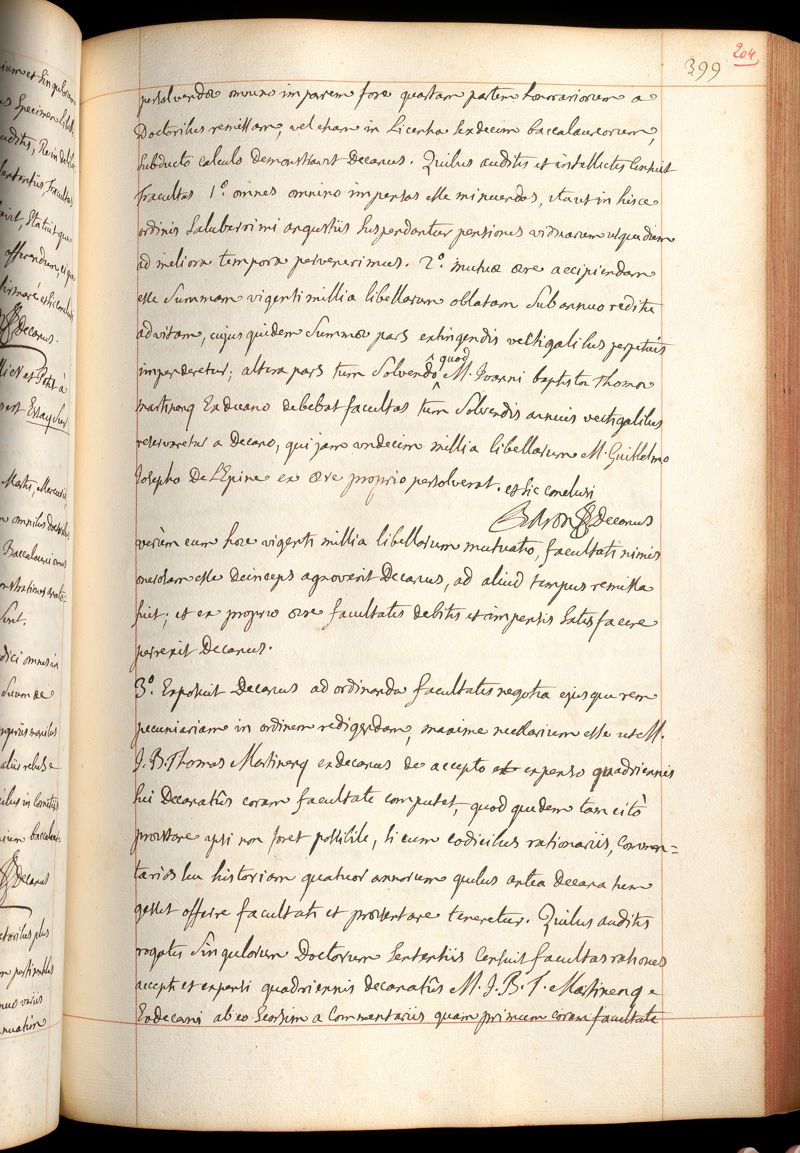 204
399
persolvenda omnino imparem fore quartam partem honorariorum a
Doctoribus remissam, vel etiam in Licentia sexdecim baccalaureorum,
subducto calculo demonstravit Decanus. Quibus auditis et intellectis Censuit
facultas 1.° omnes omnino impensas esse minuendas, ita ut in hisce
ordinis saluberrimi angustiis suspendantur pensiones viduarum usquedum
ad meliora tempora pervenerimus. 2.° mutuo ære accipiendam
esse summam viginti millia libellarum oblatam sub annuo reditu
ad vitam, cujus quidem summæ pars extinguendis vectigalibus perpetuis
impenderetur; altera pars tum solvendo quod M. Joanni baptistæ Thomæ
martinenq Exdecano debebat facultas tum solvendis annuis vectigalibus
reservaretur a Decano, qui jam undecim millia libellarum M. Guillelmo
Josepho De L'Epine ex ære proprio persolverat. et sic conclusi
Bdron Decanus
verùm cum hoc viginti millia libellarum mutuatio, facultati nimis
onerosam esse deinceps agnoverit Decanus, ad aliud tempus remissa
fuit; et ex proprio ære facultatis debitis et impensis satisfacere
perrexit Decanus.
3.° Exposuit Decanus ad ordinanda facultatis negotia ejusque rem
pecuniariam in ordinem redigendam, maxime necessarium esse ut M.
J. B. Thomas Martinenq exdecanus de accepto et expenso quadriennis
sui Decanatûs coram facultate computet, quod quidem tam citò
præstare ipsi non foret possibile, si cum codicibus rationariis, Commen=
tarios seu historiam quatuor annorum quibus antea Decanatum
gessit offerre facultati et præsentare teneretur. Quibus auditis
rogatis singulorum Doctorum sententiis censuit facultas rationes
accepti et expensi quadriennis decanatûs M. J. B. T. Martinenq
Exdecani ab eo seorsim a Commentariis quam primum coram facultate